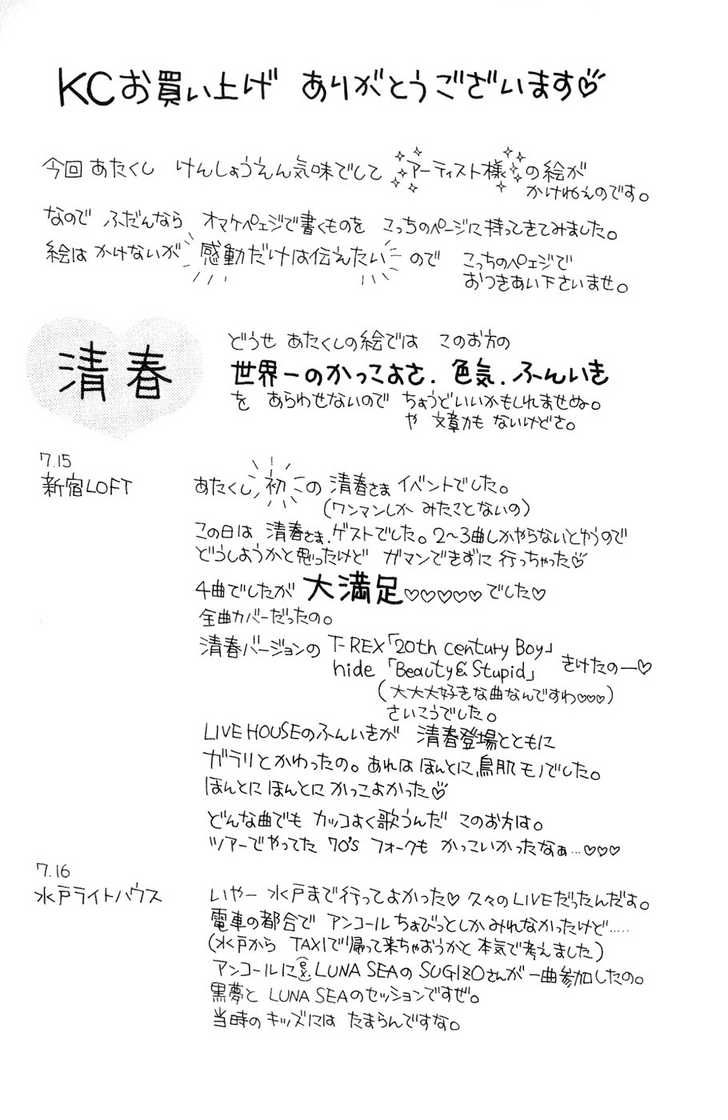 KCお買い上げ ありがとうございます♡
今回 あたくし けんしょうえん気味でして アーティスト様の絵が
かけねぇのです。
なので ふだんなら オマケペェジで書くものを こっちのページに持ってきてみました。
絵は かけないが 感動だけは伝えたい ので こっちのペェジで
おつきあい下さいませ。
清春
どうせ あたくしの絵では このお方の
世界一のかっこよさ．色気．ふんいき
を あらわせないので ちょうどいいかもしれませぬ。
や 文章力も ないけどさ。
7.15
新宿LOFT
あたくし 初 の 清春さま イベントでした。
(ワンマンしか みたことないの)
この日は 清春さま、ゲストでした。2〜3曲しかやらないとゆうので
どうしようかと思ったけど ガマンできずに 行っちゃった♡
4曲でしたが 大満足♡♡♡♡♡でした♡
全曲カバーだったの。
清春バージョンの T-REX「20th century Boy」
hide「Beauty & Stupid」 きけたのー♡
(大大大好きな曲なんですわ♡♡♡)
さいこうでした。
LIVE HOUSEのふんいきが 清春登場とともに
ガラリとかわったの。あれは ほんとに鳥肌モノでした。
ほんとに ほんとに かっこよかった♡
どんな曲でも カッコよく歌うんだ このお方は。
ツアーでやってた 70's フォークも かっこいかったなぁ…♡♡♡
7.16
水戸ライトハウス
いやー 水戸まで行ってよかった♡ 久々のLIVEだったんだよ。
電車の都合で アンコール ちょびっとしかみれなかったけど……
(水戸から TAXIで帰って来ちゃおうかと 本気で考えました)
アンコールに LUNA SEAの SUGIZOさんが 一曲参加したの。
黒夢と LUNA SEAのセッションですぜ。
当時の キッズには たまらんですな。